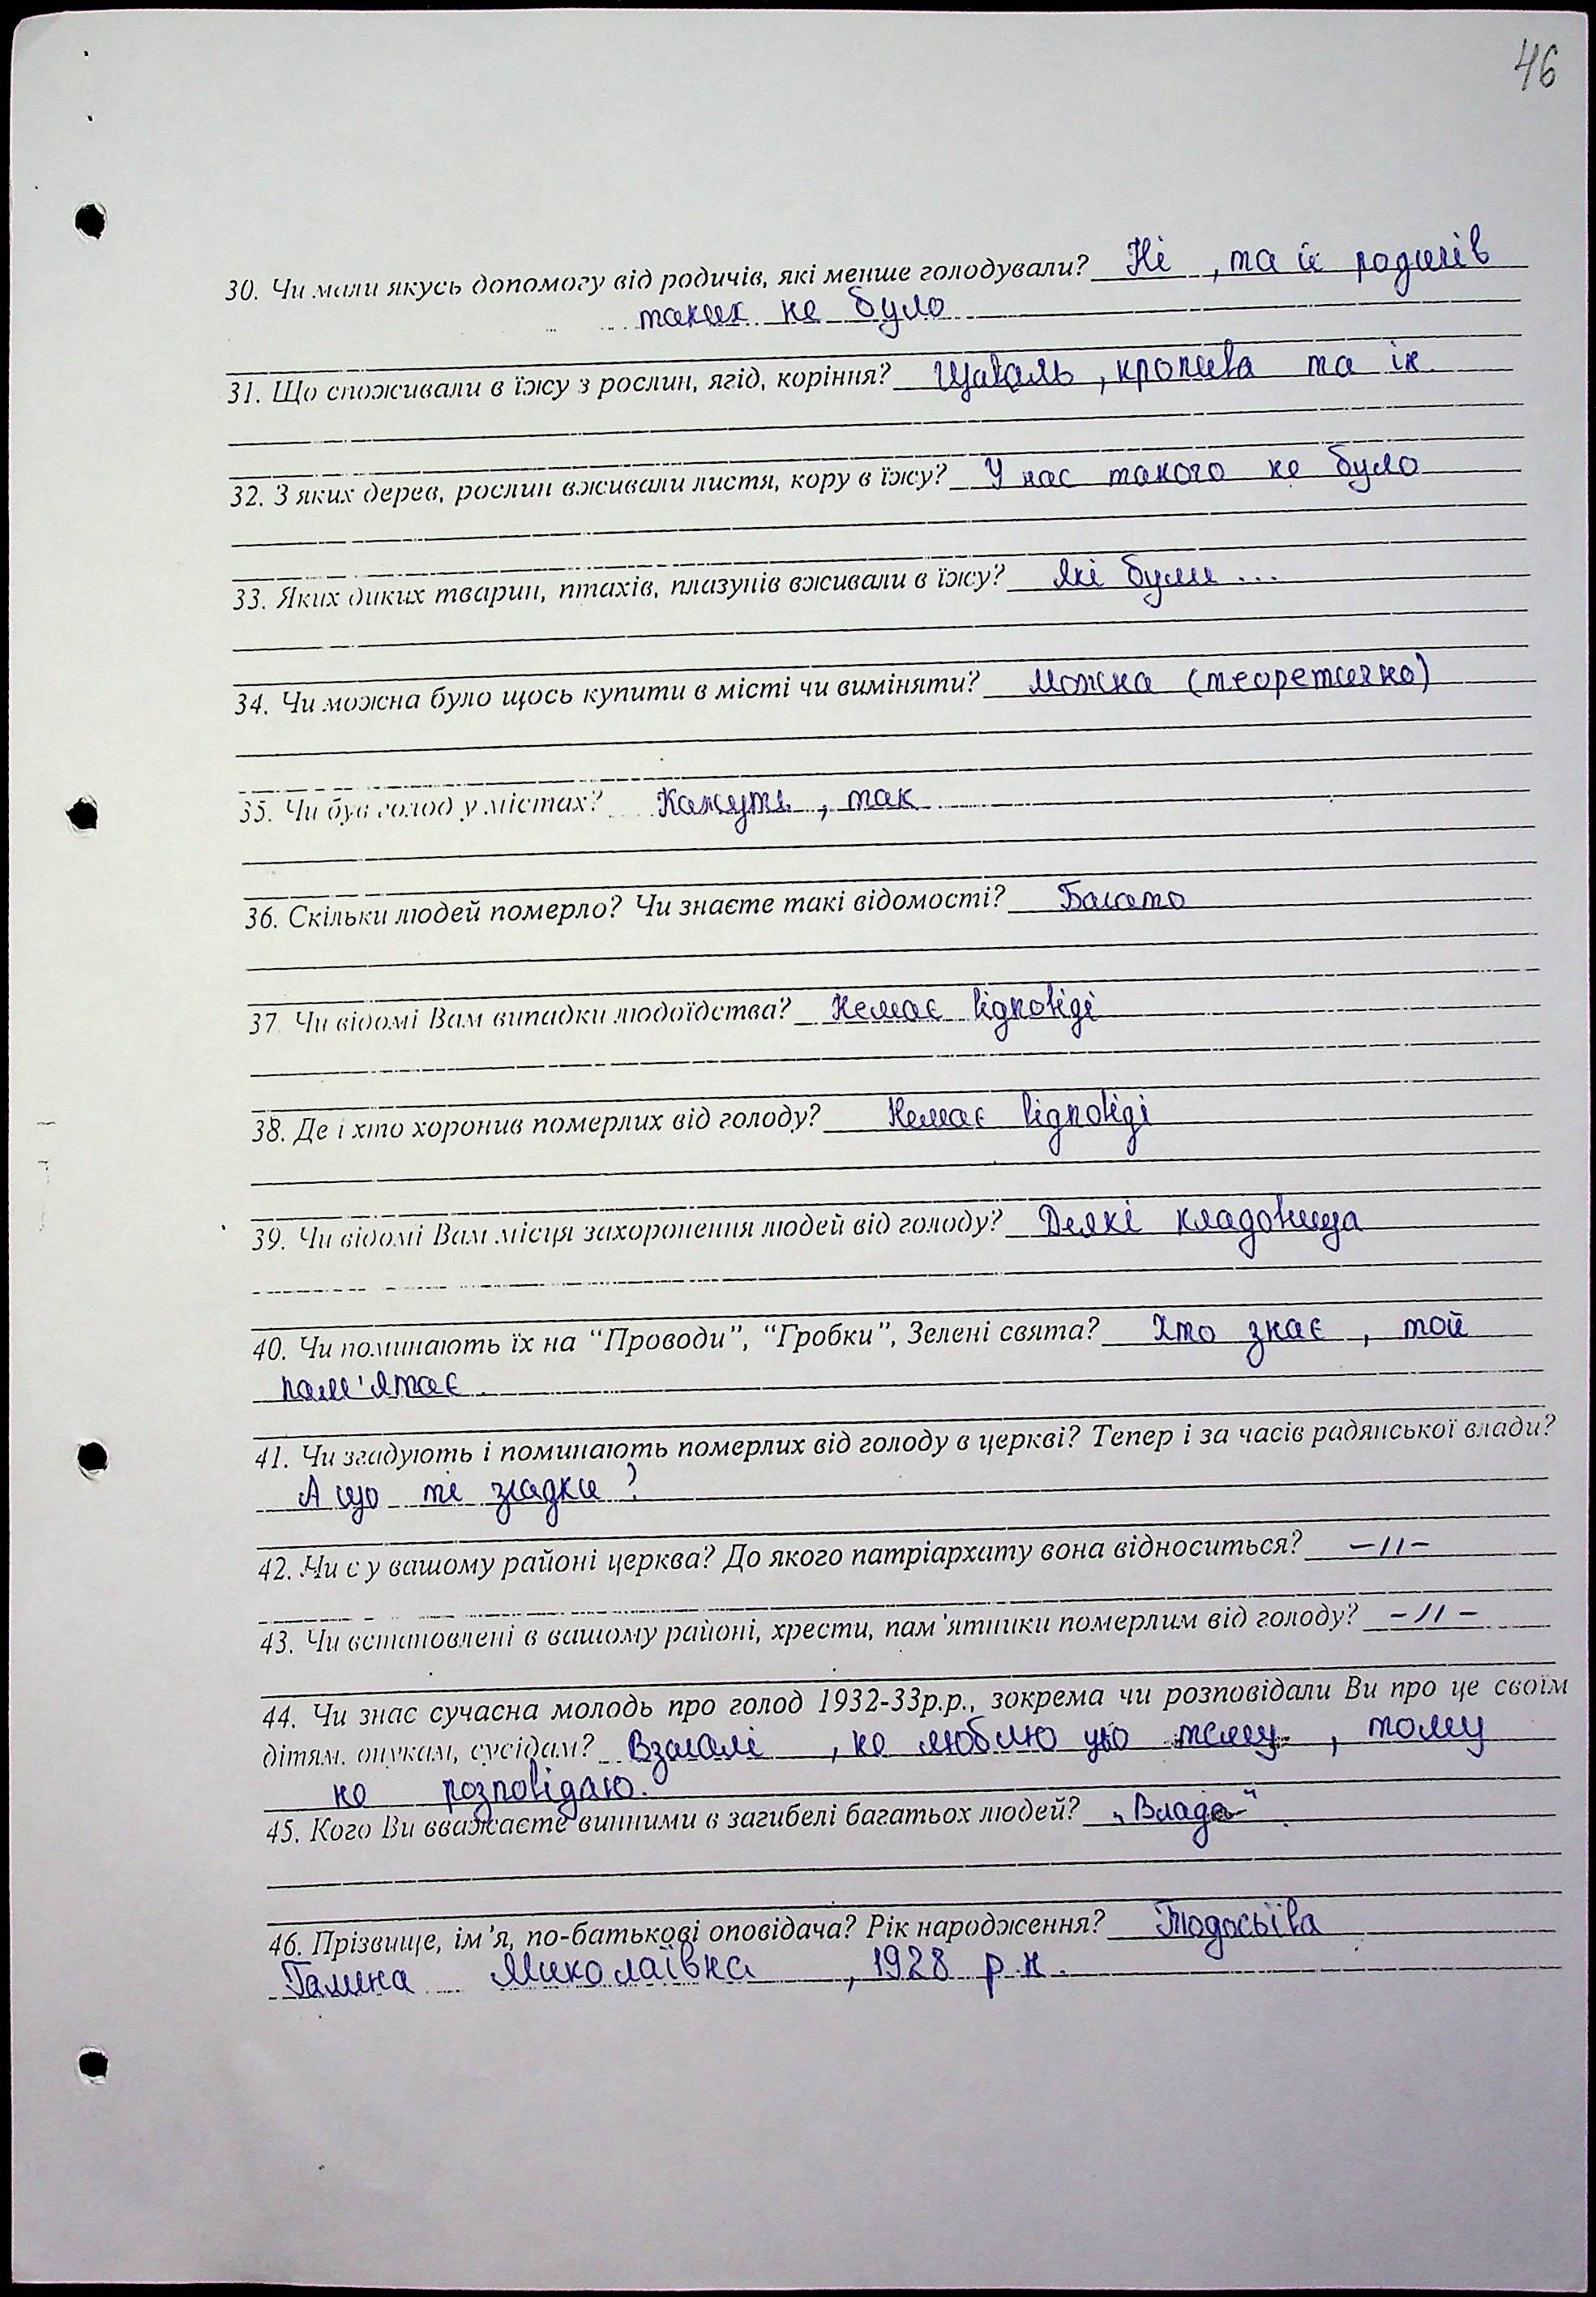 46
30. Чи мали якусь допомогу від родичів, які менше голодували? Ні , та й родичів
таких не було
31. Що споживали в їжу з рослин, ягід, коріння? Щавель, кропива та ін.
32. З яких дерев, рослин вживали листя, кору в їжу? У нас такого не було
33. Яких диких тварин, птахів, плазунів вживали в їжу? Які були ...
34. Чи можна було щось купити в місті чи виміняти? Можна (теоретично)
35. Чи був голод у містах? Кажуть , так
36. Скільки людей померло? Чи знаєте такі відомості? Багато
37. Чи відомі Вам випадки людоїдства? Немає відповіді
38. Де і хто хоронив померлих від голоду? Немає відповіді
39. Чи відомі Вам місця захоронення людей від голоду? Деякі кладовища
40. Чи поминають їх на “Проводи”, “Гробки”, Зелені свята? Хто знає , той
пам'ятає.
41. Чи згадують і поминають померлих від голоду в церкві? Тепер і за часів радянської влади?
А що ті згадки ?
42. Чи є у вашому районі церква? До якого патріархату вона відноситься? –11–
43. Чи встановлені в вашому районі, хрести, пам’ятники померлим від голоду? –11–
44. Чи знає сучасна молодь про голод 1932-33р.р., зокрема чи розповідали Ви про це своїм
дітям, онукам, сусідам? Взагалі , не люблю цю тему , тому
не розповідаю.
45. Кого Ви вважаєте винними в загибелі багатьох людей? „Влада“.
46. Прізвище, ім’я, по-батькові оповідача? Рік народження? Тодосьїва
Галина Миколаївна , 1928 р.н.